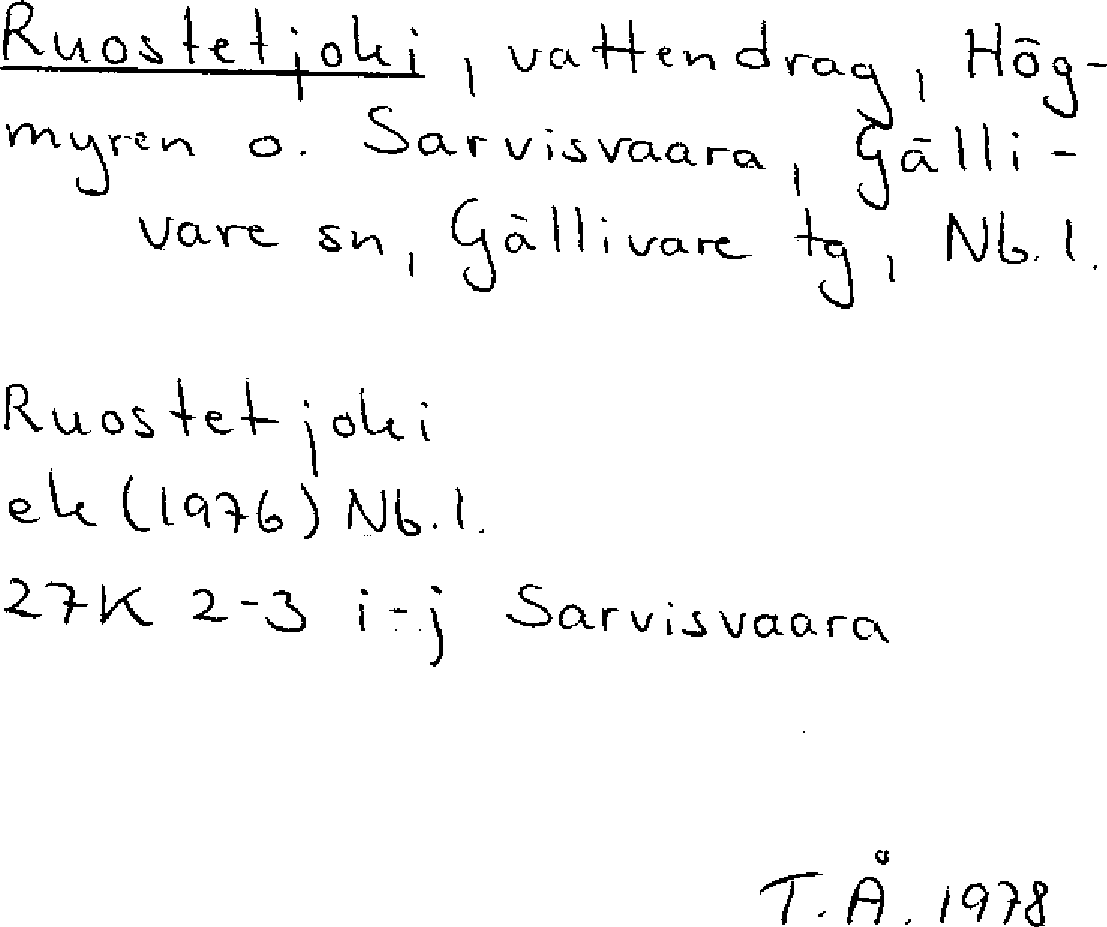 Ruostetjoki, vattendrag, Hög-
myren o. Sarvisvaara, Gälli-
vare sn, Gällivare tg, Nb. l.
Ruostetjoki
ek (1976) Nb. l.
27K 2-3 i-j Sarvisvaara
T. Å. 1978